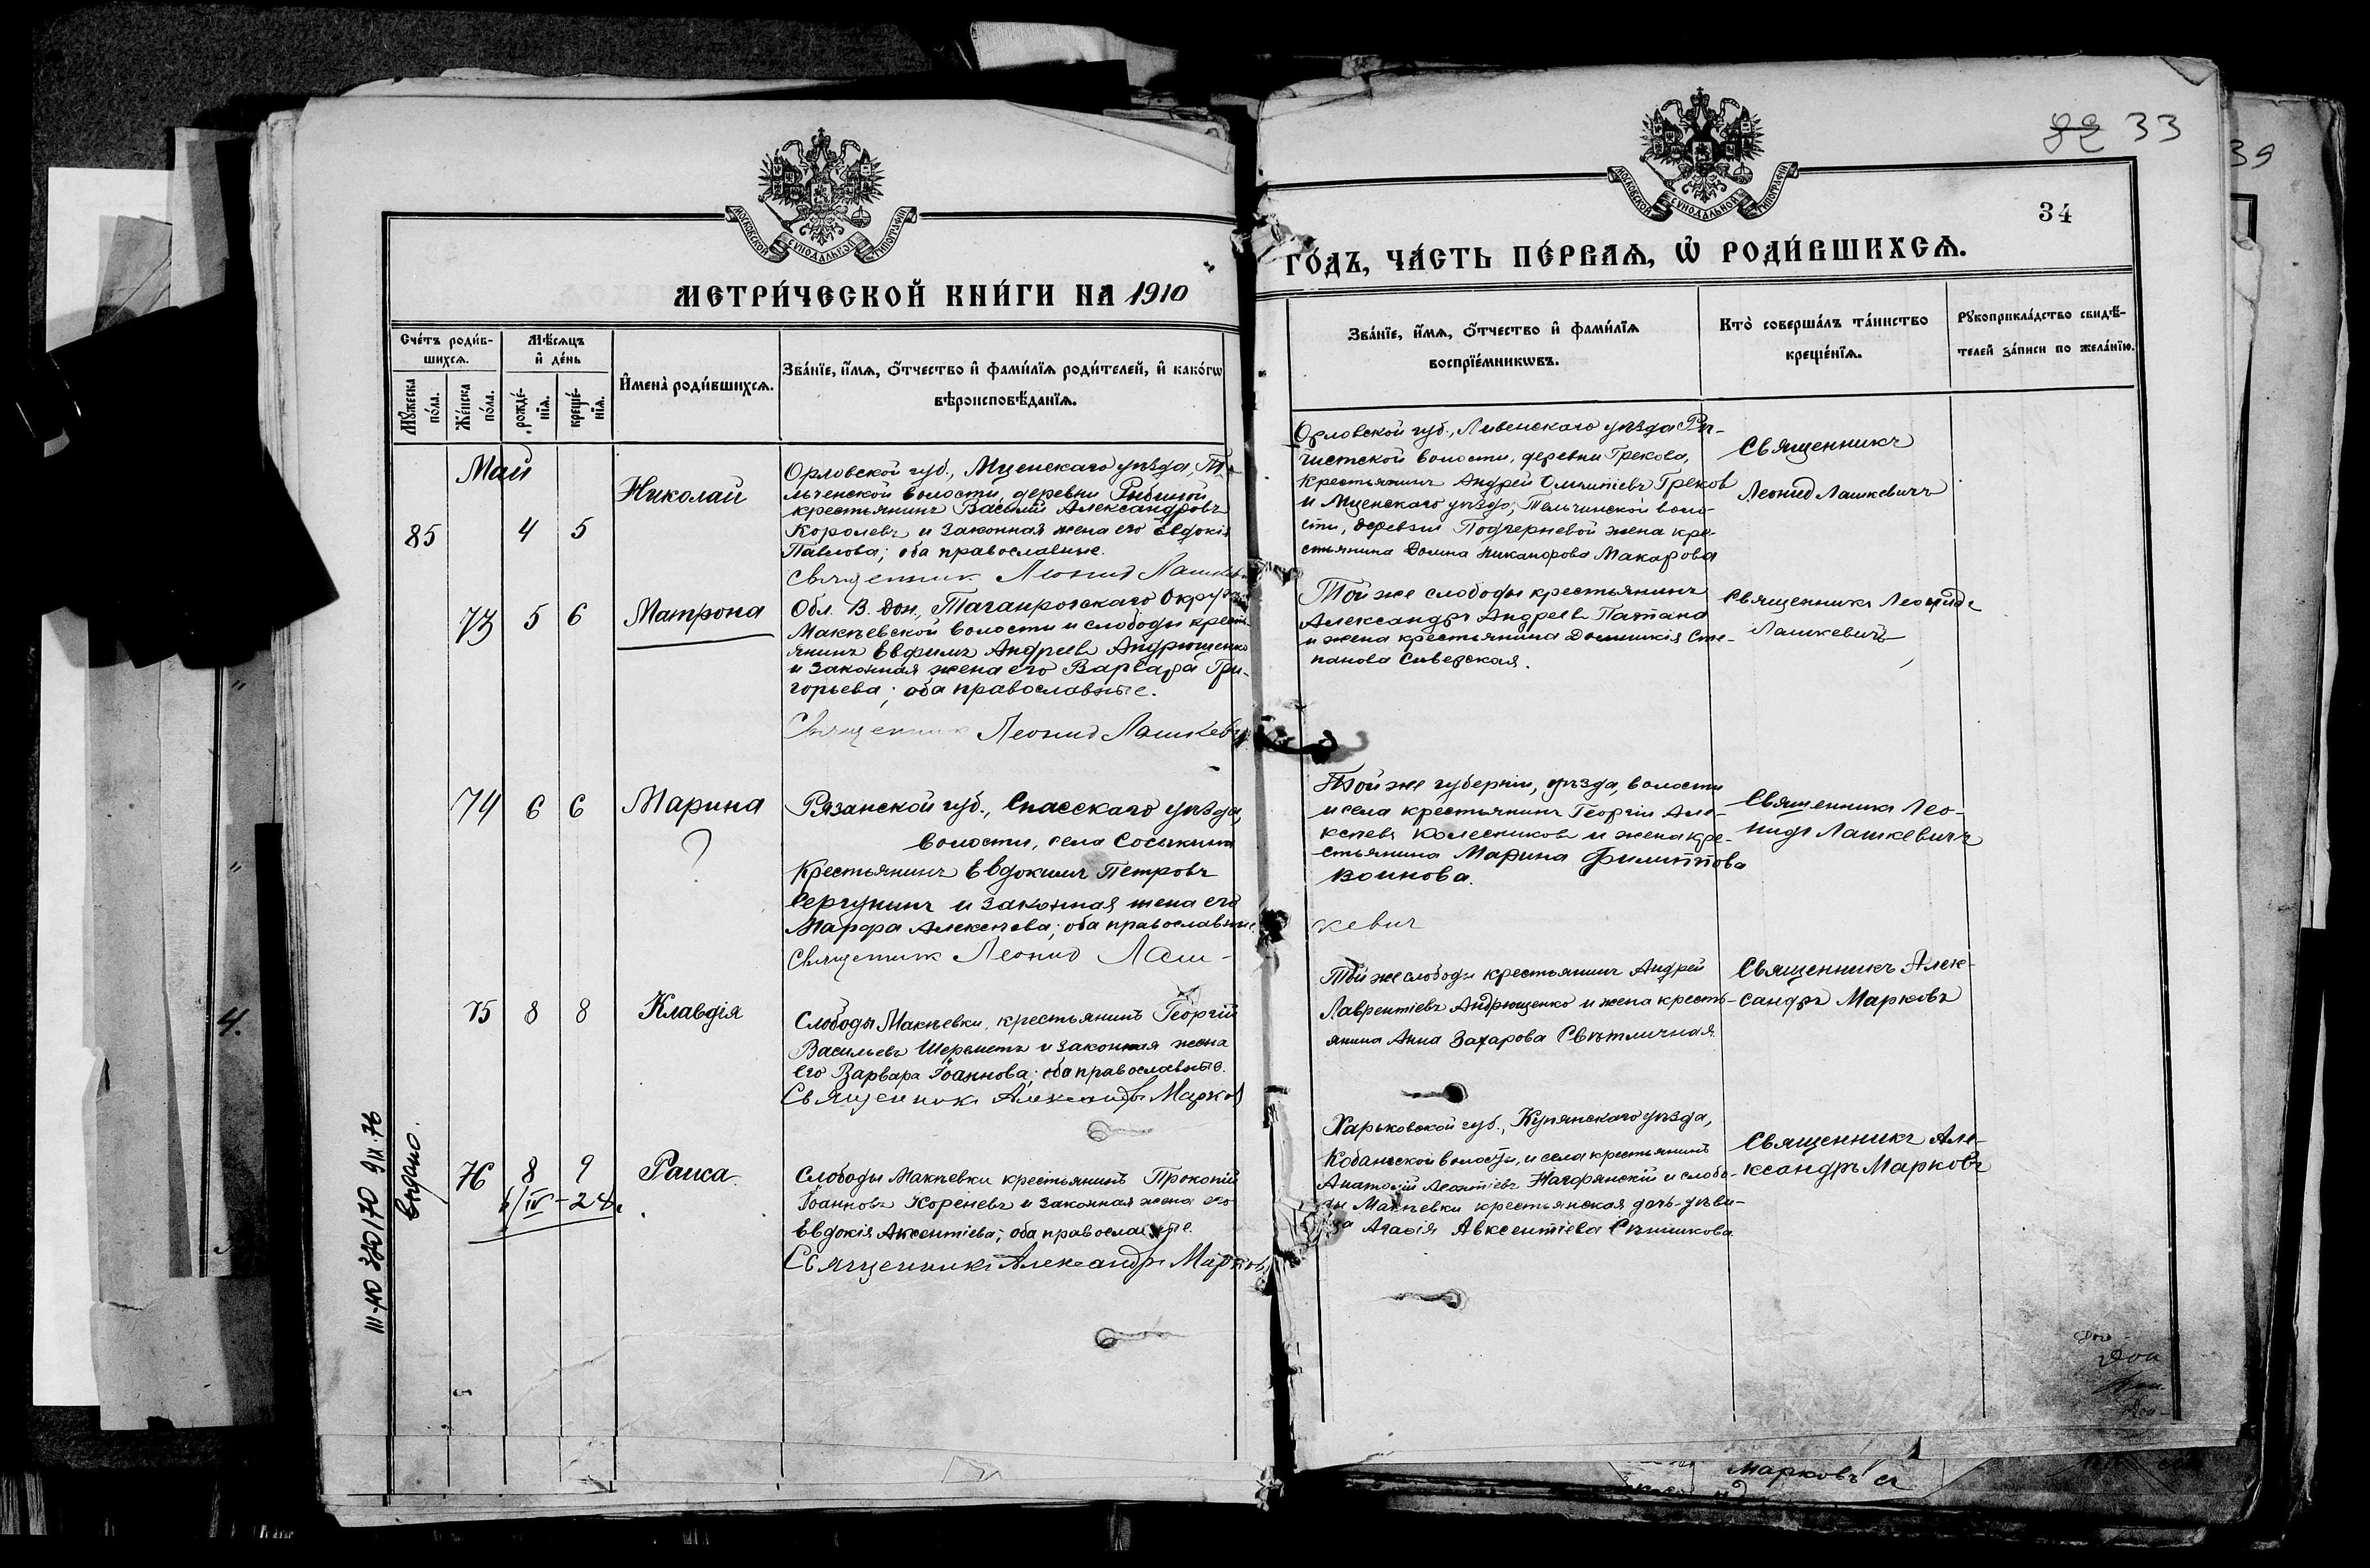 МОСКОВСКОЙ СѴНОДАЛЬНОЙ ТИПОГРАФІИ
МЕТРИ́ЧЕСКОЙ КНИ́ГИ НА 1910
Сче́тъ роди́в-
шихсѧ.
Мѣ́сѧцъ
и҆ де́нь
Мꙋ́жеска
по́ла.
Же́нска
по́ла.
рожде́-
нїѧ.
креще́-
нїѧ.
И҆мена̀ роди́вшихсѧ.
Зва́нїе, и҆́мѧ, ѻ҆́тчество и҆ фами́лїѧ роди́телей, и҆ како́гѡ
вѣроисповѣ́данїѧ.
Май
85 4 5 Николай
Орловской губ., Мценскаго уѣзда, Те-
льченской волости, деревни Рыбиной,
крестьянинъ Василій Александровъ
Королевъ и законная жена его Евдокія
Павлова; оба православные.
Священник Леонид Лашкевич
73 5 6 Матрона
Обл. В. Дон., Таганрогскаго Округа
Макѣевской волости и слободы кресть-
янинъ Евфимъ Андреевъ Андрющенко
и законная жена его Варвара Гри-
горьева; оба православные.
Священник Леонид Лашкевич
74 6 6 Марина
?
Рязанской губ., Спасскаго уѣзда,
волости, села Сосыкина
крестьянинъ Евдокимъ Петровъ
Сергунинъ и законная жена его
Марфа Алексѣева; оба православные
Священник Леонид Лаш-
75 8 8 Клавдія
Слободы Макѣевки, крестьянинъ Георгій
Васильевъ Шереметъ и законная жена
его Варвара Іоаннова; оба православные.
Священникъ Александръ Марков
76 8 9 Раиса
/IV-28.
Слободы Макѣевки крестьянинъ Прокопій
Іоанновъ Кореневъ и законная жена его
Евдокія Аксентіева; оба православные.
Священникъ Александръ Марков
Выдано.
III-НО 320170 9/IX.76
33
34
39
МОСКОВСКОЙ СѴНОДАЛЬНОЙ ТИПОГРАФІИ
ГО́ДЪ, ЧА́СТЬ ПЕ́РВАѦ, Ѡ҆ РОДИ́ВШИХСѦ.
Зва́нїе, и҆́мѧ, ѻ҆́тчество и҆ фами́лїѧ
воспрїе́мникѡвъ.
Кто̀ соверша́лъ та́инство
креще́нїѧ.
Рꙋкоприкла́дство свидѣ́-
телей за́писи по жела́нїю.
Орловской губ., Ливенскаго уѣзда Рѣ-
чистской волости, деревни Грекова,
крестьянинъ Андрей Ѳмитіевъ Греков
и Мценскаго уѣзда, Тельчинской воло-
сти, деревни Подчерневой жена кре-
стьянина Домна Никанорова Макарова
Священникъ
Леонид Лашкевичъ
Той же слободы крестьянинъ
Александръ Андреевъ Патана
и жена крестьянина Домникія Сте-
панова Сиверская.
Священникъ Леонидъ
Лашкевичъ
Той же губерніи, уѣзда, волости
и села крестьянинъ Георгій Але-
ксѣевъ Колесников и жена кре-
стьянина Марина Филиппова
Воинова.
Священникъ Лео-
нидъ Лашкевичъ
кевич
Той же слободы крестьянинъ Андрей
Лаврентіевъ Андрющенко и жена кресть-
янина Анна Захарова Свѣтличная
Священникъ Алек-
сандръ Марковъ
Харьковской губ., Купянскаго уѣзда,
Кабанской волости, и села крестьянинъ
Анатолій Леонтіевъ Нагорянскій и слобо-
ды Макѣевки крестьянская дочь-дѣви-
ца Агафія Авксентіева Сѣчикова
Священникъ Але-
ксандръ Марковъ
Марковъ